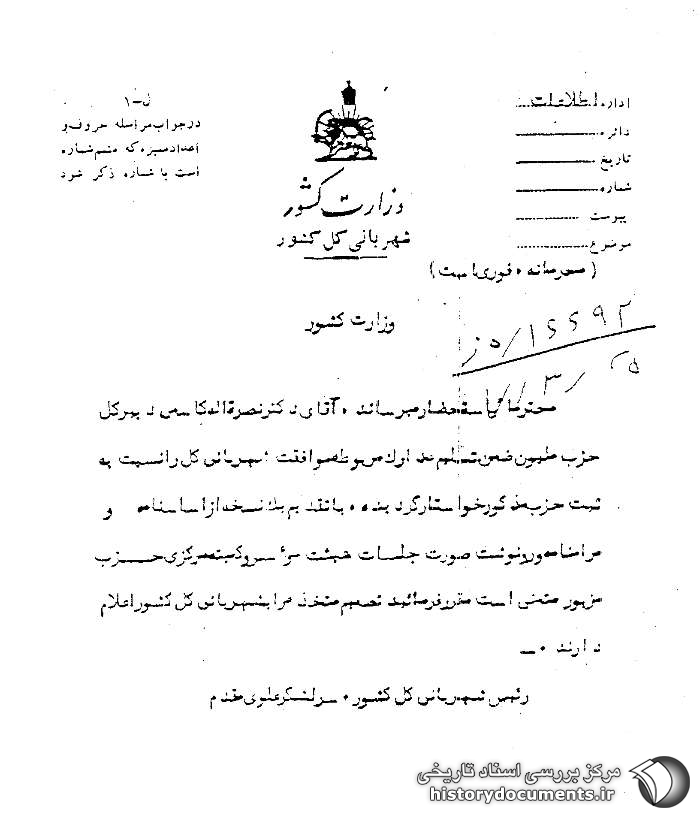 ل-۱
در جواب مراسله حروف و
اعداد سبزه که منسم شماره
است با شماره ذکر شود
وزارت کشور
شهربانی کل کشور
اداره اطلاعات
دائره
تاریخ
شماره
پیوست
موضوع
(محرمانه ۰ فوری است)
وزارت کشور
۱۶۶۹۲/۵۰ز
محترما باستحضار میرساند ۰ آقای دکتر نصرة اله کاسمی دبیر کل
حزب ملیون ضمن تسلیم مدارک مربوطه موافقت شهربانی کل را نسبت به
ثبت حزب مذکور خواستار گردیده ۰ با تقدیم یک نسخه از اساسنامه و
مرامنامه و رونوشت صورت جلسات هیئت مؤسس و کمیته مرکزی حزب
مزبور متمنی است مقرر فرمائید تصمیم متخذه را بشهربانی کل کشور اعلام
دارند ۰ــ
رئیس شهربانی کل کشور ۰ سرلشکر علوی مقدم
مرکز بررسی اسناد تاریخی
historydocuments.ir